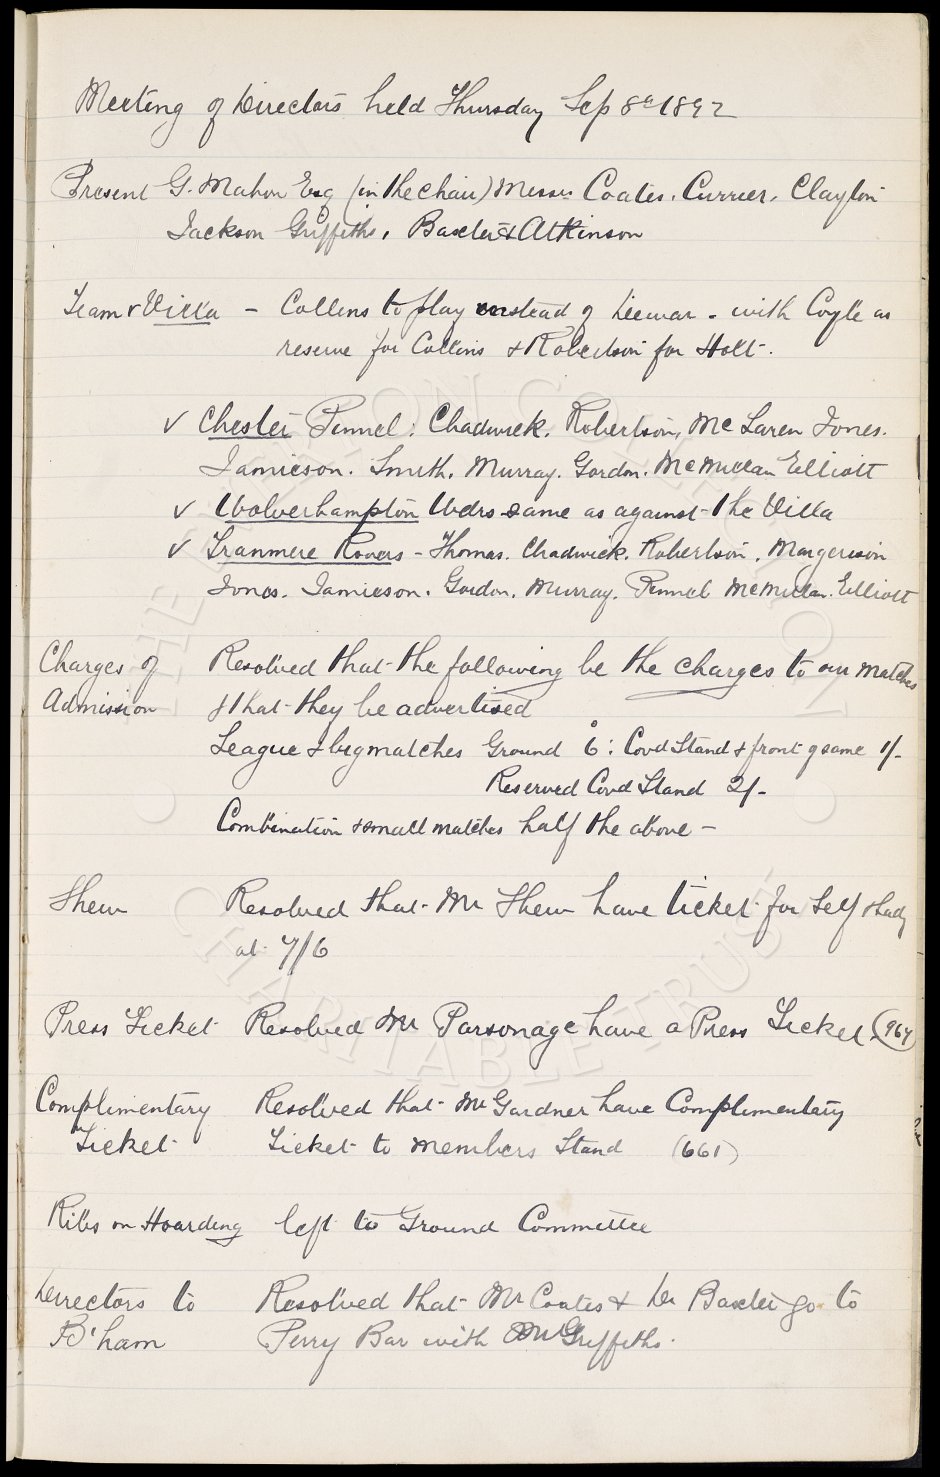 Meeting of Directors held Thursday Sep 8th 1892
Present G. Mahon Esq (in the chair) Messrs Coates. Currier. Clayton
Jackson Griffiths, Baxter & Atkinson
Team v Villa - Collins to play instead of Dewar - with Coyle as
reserve for Collins & Robertson for Holt.
v Chester Pinnel: Chadwick. Robertson, McLaren Jones.
Jamieson. Smith. Murray. Gordon. McMillan Elliott
v Wolverhampton Wdrs same as against the Villa
v Tranmere Rovers - Thomas. Chadwick. Robertson. Margerison
Jones. Jamieson. Gordon. Murray. Pinnel McMillan. Elliott
Charges of Resolved that the following be the charges to our matches
Admission & that they be advertised
League & big matches Ground 6: Covd Stand & front of same 1/-
Reserved Covd Stand 2/-
Combination & small matches half the above -
Shew Resolved that Mr Shew have ticket for Self & lady
at 7/6
Press Ticket Resolved Mr Parsonage have a Press Ticket (964)
Complimentary Resolved that Mr Gardner have Complimentary
Ticket Ticket to members Stand (661)
Ribs on Hoarding left to Ground Committee
Directors to Resolved that Mr Coates & Dr Baxter go to
B'ham Perry Bar with Mr Griffiths.
THE EVERTON COLLECTION
CHARITABLE TRUST